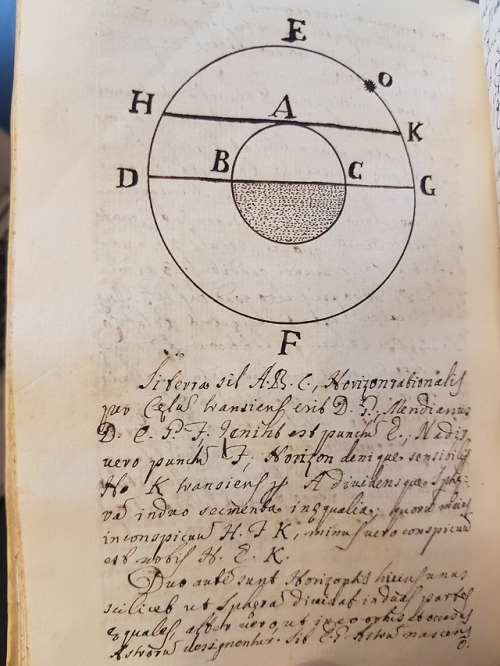 E
O
H A K
B C
D G
F
Si terra sit A. B. C., Horizon rationalis
per Cęlũ transiens erit D. G., Meridianus
D. E. G. F. Zenith est punctũ E., Nadir
vero punctũ F, Horizon denique sensibilis
H. K transiens p A dividensque Sphę-
rã in duo segmenta inęqualia, quorũ maius
inconspicuũ H. F K, minus vero conspicuũ
est nobis H. E. K.
Duo autẽ sunt Horizontis unus
scilicet ut Sphęrã dividat in duas partes
ęquales, alter vero ut in eo ortus et occasus
Astrorũ designentur. Sit Astrũ nascens
O.